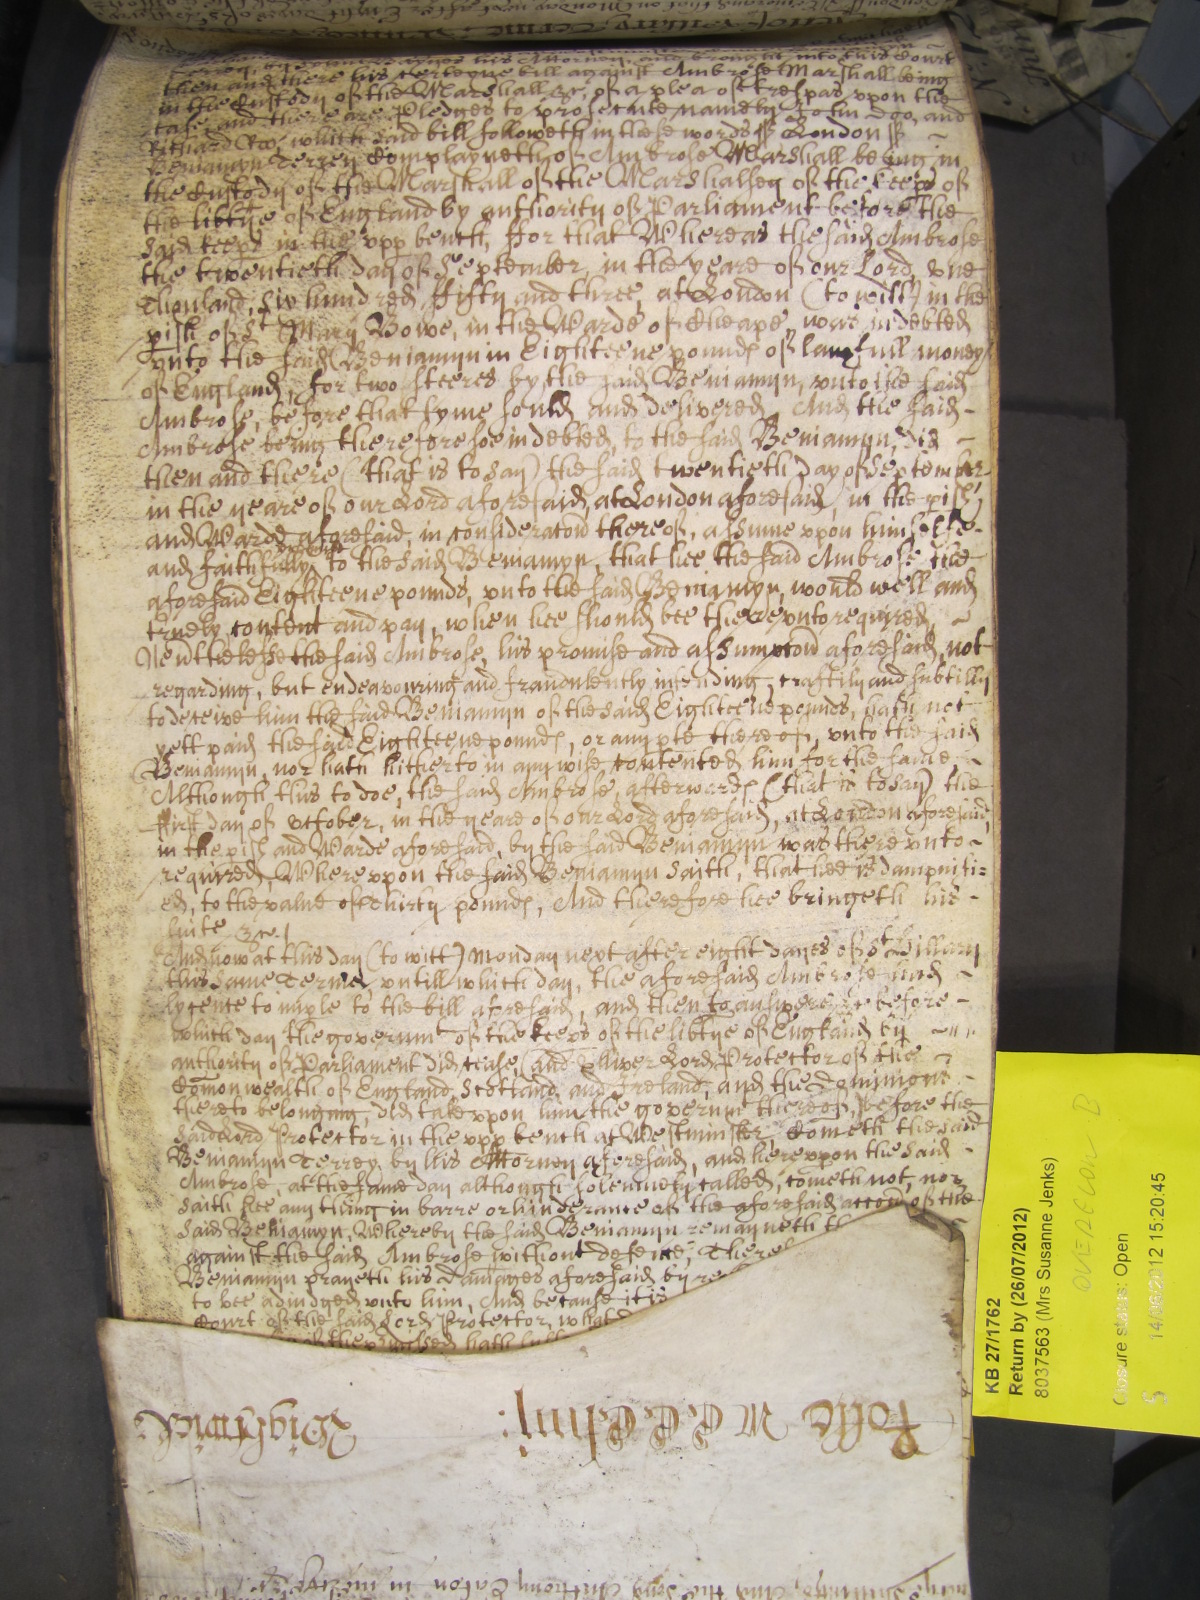 Terrey by his Attorney, and brought into this Court
then and there his certeyne bill against Ambrose Marshall being
in the Custody of the Marshall &c, of a plea of trespas vpon the
case, and there are Pledges to prosecute namely John Doo, and
Richard Roo, which said bill followeth in these words ss London ss
Beniamyn Terrey Complayneth of Ambrose Marshall being in
the Custody of the Marshall of the Marshalsey of the keeps of
the libtye of England by authority of Parliament before the
said keeps in the vpp bench, ffor that Whereas the said Ambrose
the twentieth day of September, in the yeare of our Lord, One
Thousand, Six hundred, ffifty and three, at London (to witt) in the
pish of St Mary Bowe, in the Warde of Cheape, was indebted
vnto the said Beniamyn in Eighteene pounds of lawfull money
of England, for two steeres by the said Beniamyn, vnto the said
Ambrose, before that tyme sould and delivered, And the said
Ambrose being therefore soe indebted, to the said Beniamyn, did
then and there (that is to say) the said twentieth Day of September
in the yeare of our Lord aforesaid, at London aforesaid, in the pish
and Warde aforesaid, in consideracon thereof, assume vpon himselfe
and faithfully to the said Beniamyn, that hee the said Ambrose the
aforesaid Eighteene pounds, vnto the said Beniamyn, would well and
truely content and pay, when hee should bee therevnto required,
Neuerthelesse the said Ambrose, his promise and assumpcon aforesaid, not
regarding, but endeavouring and fraudulently intending, craftily and subtilly
to deceive him the said Beniamyn of the said Eighteene pounds, hath not
yett paid the said Eighteene pounds, or any pte thereof, vnto the said
Beniamyn, nor hath hitherto in any wise contented him for the same
Although this to doe, the said Ambrose, afterwards (that is to say) the
first day of October, in the yeare of our Lord aforesaid, at London aforesaid,
in the pish and Warde aforesaid, by the said Beniamyn was therevnto
required, Wherevpon the said Beniamyn saith, that hee is dampnifi=
ed, to the value of thirty pounds, And therefore hee bringeth his
suite &c.
And now at this day (to witt) Monday next after eight dayes of St Hillary
this same Terme, vntill which day, the aforesaid Ambrose had
lycence to imple to the bill aforesaid, and then to answere before
which day the governmt of the keeps of the libtye of England by
authority of Parliament did cease, and Oliver Lord Protector of the
Comonwealth of England, Scotland, and Ireland, and the dominions
thereto belonging, did take vpon him the governmt thereof, before the
said Lord Protector in the vpp bench at Westminster, Cometh the said
Beniamyn Terrey, by his Attorney aforesaid, and herevpon the said
Ambrose, at the same day although solemnely called, cometh not, nor
saith hee any thing in barre or hinderance of the aforesaid accon of the
said Beniamyn, Whereby the said Beniamyn remayneth
against the said Ambrose without defence,
Beniamyn prayeth his Damages aforesaid by
to bee adiudged vnto him, And because it is
Court of the said Lord Protector, what
hath
Rolle
Wightwick
KB 27/1762
Return by (26/07/2012)
8037563 (Mrs Susanne Jenks)
Closure status: Open
14/06/2012 15:20:45